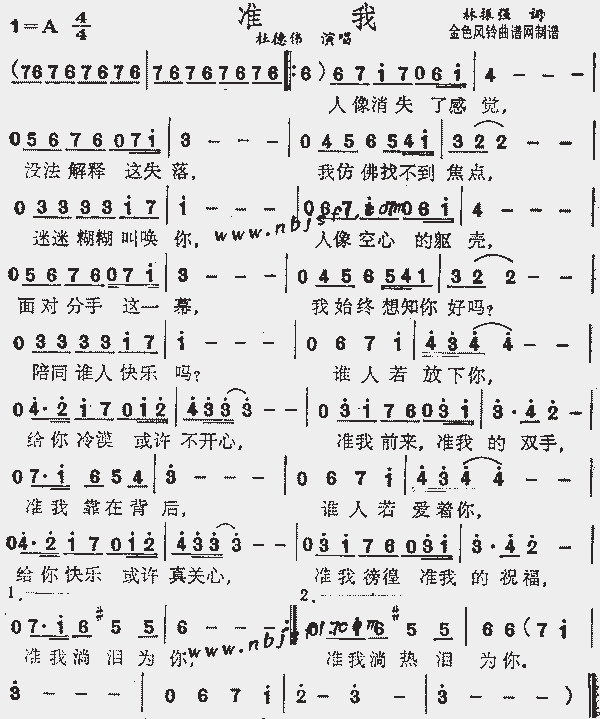 准 我
1=A 4/4
杜德伟 演唱
林振强 词
金色风铃曲谱网制谱
(76767676 | 76767676 :6) 67i706i | 4 - - -
人像消失 了感 觉,
05676071 | 3 - - - | 04565441 | 322 - -
没法解释 这失落, 我仿佛找不到 焦点,
0333317 | i - - - 067i706i | 4 - - -
迷迷糊糊叫唤 你, 人像空心 的躯 壳,
www.nbjsfl.com
05676071 | 3 - - - | 04565441 | 322 - -
面对分手 这一 幕, 我始终想知你 好吗?
0333317 | i - - - | 067i | 4344 - -
陪同谁人快乐 吗? 谁人若 放下你,
04·2i7012 | 4333 - - 03i76031 | 3·42 -
给你冷漠 或许不开心, 准我前来,准我 的 双手,
07·i 654 | 3 - - - 067i | 4344 - -
准我 靠在背 后, 谁人若 爱着你,
04·2i7012 | 4333 - - 03i76031 | 3·42 -
给你快乐 或许真关心, 准我彷徨 准我 的祝福,
1. 2.
07·i6#55 | 6 - - - :‖ 07·i6#55 | 66(7i
准我淌 泪为 你, 准我淌 热泪 为你.
www.nbjsfl.com
3 - - - | 067i | 2 - 3 - | 3 - - - ) ‖